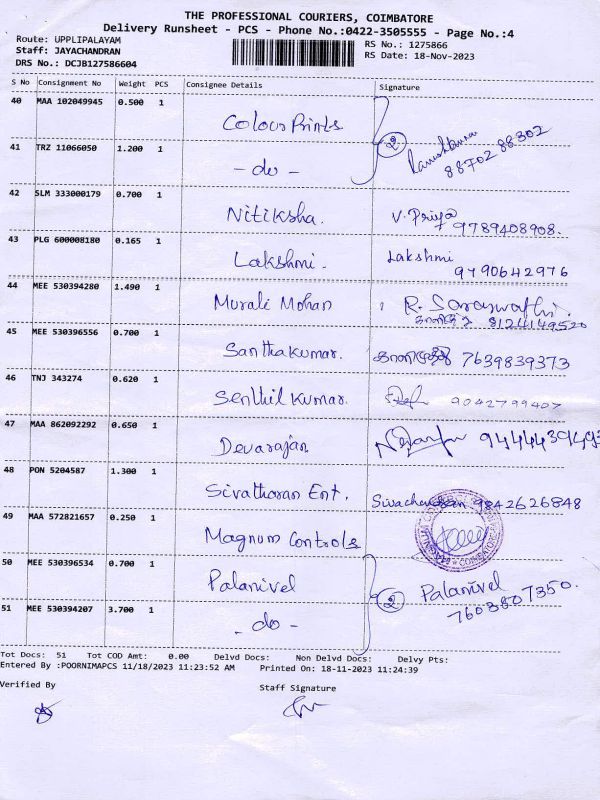 THE PROFESSIONAL COURIERS, COIMBATORE
Delivery Runsheet - PCS - Phone No.:0422-3505555 - Page No.:4
Route: UPPLIPALAYAM
RS No.: 1275866
Staff: JAYACHANDRAN
RS Date: 18-Nov-2023
DRS No.: DCJB127586604
S No Consignment No Weight PCS Consignee Details Signature
40 MAA 102049945 0.500 1 Colour Prints
② 88702 88302
41 TRZ 11066050 1.200 1 - do -
42 SLM 333000179 0.700 1 Nitiksha. V. Priya 9789408908.
43 PLG 600008180 0.165 1 Lakshmi. Lakshmi 9790642976
44 MEE 530394280 1.490 1 Murali Mohan R. Saraswathi. 8124149520
45 MEE 530396556 0.700 1 Santhakumar. 7639839373
46 TNJ 343274 0.620 1 Senthil Kumar. 9042799407
47 MAA 862092292 0.650 1 Devarajan 9444439493
48 PON 5204587 1.300 1 Sivatharan Ent. 9842626848
49 MAA 572821657 0.250 1 Magnum Controls
50 MEE 530396534 0.700 1 Palanivel ② Palanivel 7603807350.
51 MEE 530394207 3.700 1 - do -
Tot Docs: 51 Tot COD Amt: 0.00 Delvd Docs: Non Delvd Docs: Delvy Pts:
Entered By :POORNIMAPCS 11/18/2023 11:23:52 AM Printed On: 18-11-2023 11:24:39
Verified By Staff Signature